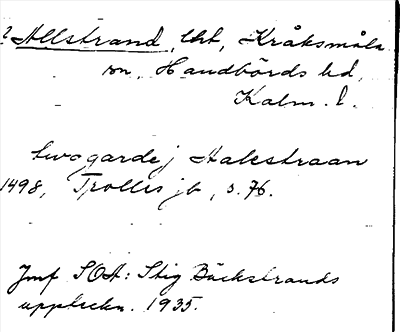 ? Allstrand, lht, Kråksmåla
sn, Handbörds hd,
Kalm. l.
huo gardej Aalestraan
1498, Trolles jb, s. 76.
Jmf SOA: Stig Bäckstrands
uppteckn. 1935.